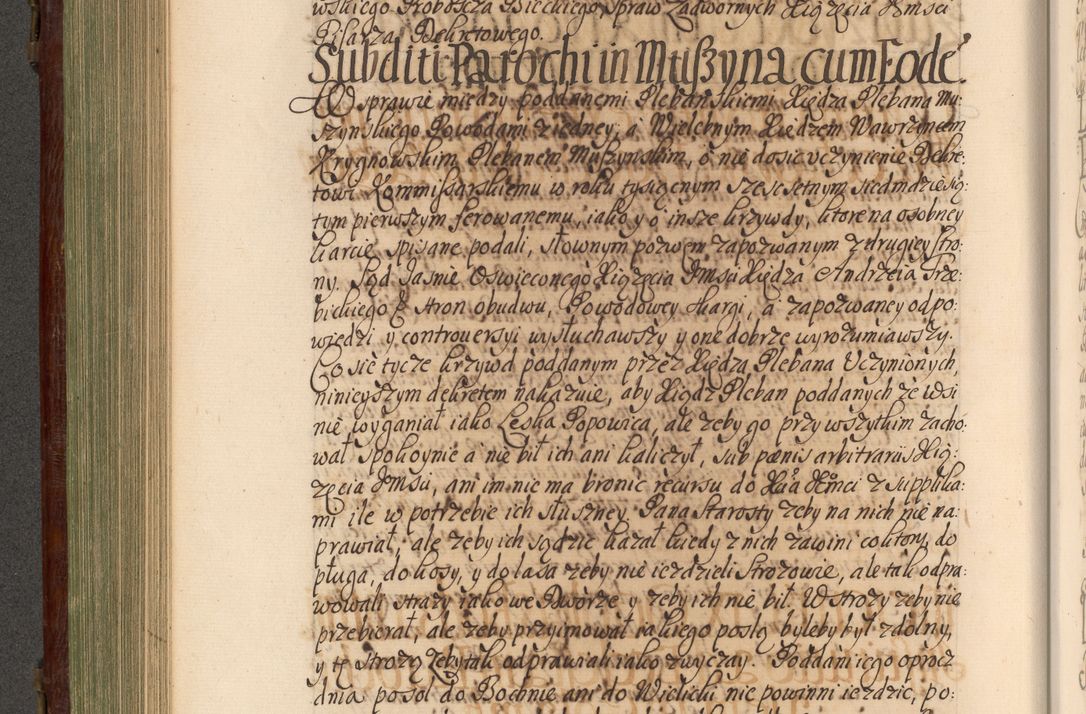 wskiego Proboszcza Bieckiego, spraw zadwornych Xiążęcia Jmści
Pisarza Dekretowego.
Subditi Parochi in Muszyna cum Eode.
W sprawie między poddanemi Plebanskiemi Xiędza Plebana Mu:
szynskiego Powodami z iedney, a Wielebnym Xiędzem Wawrzyncem
Krygnowskim Plebanem Muszynskim, o nie dosic vczynienie Dekre:
towi Kommissarskiemu w roku tysiącnym szescsetnym siedmdziesią:
tym pierwszym ferowanemu, iako y o insze krzywdy, ktore na osobney
karcie spisane podali, słownym pozwem zapozwanym z drugiey stro:
ny. Sąd Jasnie Oswieconego Xiążęcia Jmści Xiędza Andrzeia Trze:
bickiego & stron obudwu, Powodowey skargi, a zapozwaney odpo:
wiedzi y controuersyi wysłuchawszy y one dobrze wyrozumiawszy.
Co się tycze krzywd poddanym przez Xiędza Plebana Vczynionych,
ninieyszym dekretem nakazuie, aby Xiądz Pleban poddanych ze Wsi
nie wyganiał iako Leska Popowica, ale żeby go przy wszytkim zacho:
wał spokoynie a nie bił ich ani kaliczył, sub pænis arbitrariis Xią:
żęcia Jmści, ani im nie ma bronic recursu do Xcia Jmci z supplika:
mi ile w potrzebie ich słuszney. Pana Starosty żeby na nich nie na:
prawiał, ale żeby ich sądzic kazał kiedy z nich zawini co ktory, do
pługa, do kosy, y do lasa żeby nie iezdzieli Strożowie, ale tak odpra:
wowali straży iako we Dworze y żeby ich nie bił. W stroży żeby nie
przebierał, ale żeby przyimował iakiego poslą byleby był zdolny,
y tę strożą żeby tak odprawiali iako zwyczay. Poddani iego oprocz
dnia po sol do Bochnie ani do Wielicki nie powinni iezdzic, po: